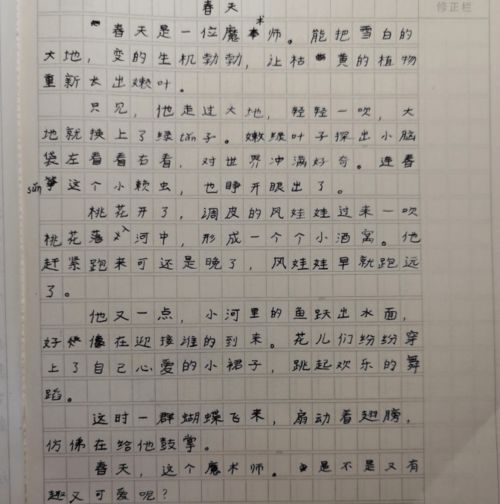 春天
修正栏
春天是一位魔术师。能把雪白的
大地，变的生机勃勃，让枯黄的植物
重新长出嫩叶。
只见，他走过大地，轻轻一吹，大
地就换上了绿tǎn子。嫩绿叶子探出小脑
袋左看看右看，对世界冲满好奇。连春
sǔn笋这个小赖虫，也睁开眼出了。
桃花开了，调皮的风娃娃过来一吹
桃花落入河中，形成一个个小酒窝。他
赶紧跑来可还是晚了，风娃娃早就跑远
了。
他又一点，小河里的鱼跃出水面，
好像在迎接谁的到来。花儿们纷纷穿
上了自己心爱的小裙子，跳起欢乐的舞
蹈。
这时一群蝴蝶飞来，扇动着翅膀，
仿佛在给他鼓掌。
春天，这个魔术师。是不是又有
趣又可爱呢？